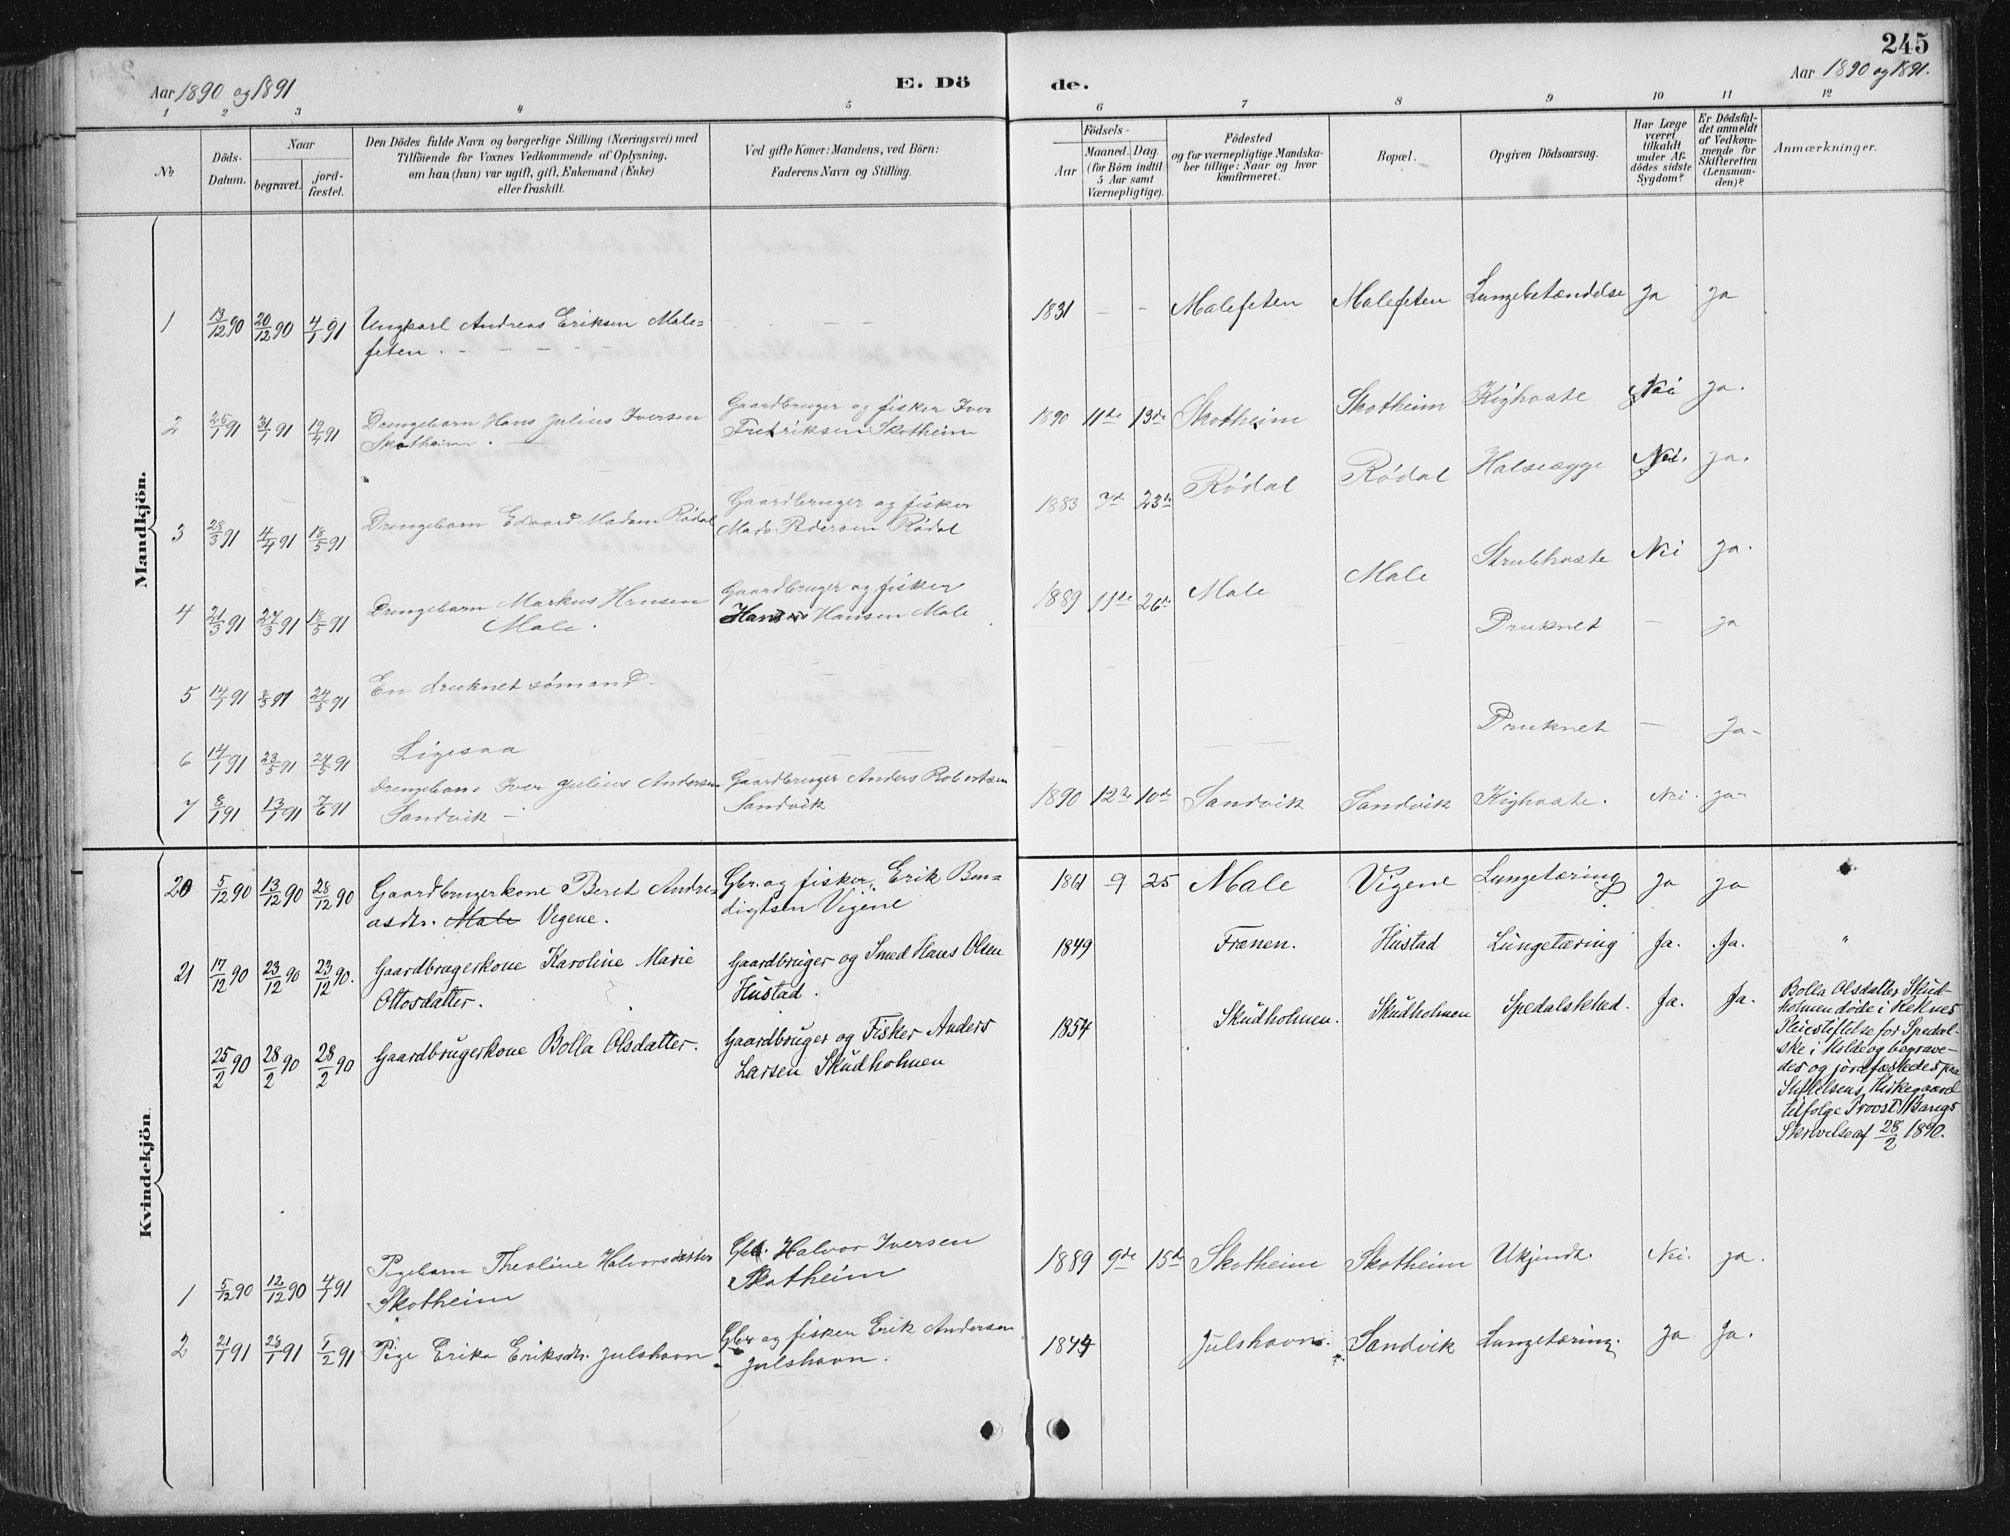 245
Aar 1890 og 1891
E. Dö de.
Aar 1890 og 1891.
1 2 3 4 5 6 7 8 9 10 11 12
No
Döds-
Datum.
Naar
begravet.
jord-
fæstet.
Den Dödes fulde Navn og borgerlige Stilling (Næringsvei) med
Tilföiende for Voxnes Vedkommende af Oplysning,
om han (hun) var ugift, gift, Enkemand (Enke)
eller fraskilt.
Ved gifte Koner: Mandens, ved Börn:
Faderens Navn og Stilling.
Födsels-
Aar
Maaned. Dag.
(for Börn indtil
5 Aar samt
Værnepligtige).
Födested
og for værnepligtige Mandska-
ber tillige: Naar og hvor
konfirmeret.
Bopæl.
Opgiven Dödsaarsag.
Har Læge
været
tilkaldt
under Af-
dödes sidste
Sygdom?
Er Dödsfal-
det anmeldt
af Vedkom-
mende for
Skifteretten
(Lensman-
den)?
Anmærkninger.
Mandkjön.
1 13/12 90 20/12 90 4/1 91 Ungkarl Andreas Eriksen Male= - - - 1831 - - Malefeten Malefeten Lungebetændelse Ja Ja
feten. - - - - -
2 25/1 91 31/1 91 19/4 91 Drengebarn Hans Julius Iversen Gaardbruger og fisker Iver 1890 11te 13de Skotheim Skotheim Kighoste Nei Ja.
Skotheim. - Fredriksen Skotheim
3 28/3 91 4/4 91 18/5 91 Drengebarn Edvard Madsen Rödal Gaardbruger og fisker 1883 7de 23de Rödal Rödal Halssyge Nei. Ja.
Mads Pedersen Rödal
4 21/3 91 27/3 91 18/5 91 Drengebarn Markus Hansen Gaardbruger og fisker 1889 11te 26de Male Male Strubhoste Nei Ja.
Male. Hans Hansen Male
5 14/1 91 2/5 91 24/5 91 En druknet sömand - Druknet - Ja
6 14/1 91 23/5 91 24/5 91 Ligesaa Druknet - Ja -
7 8/1 91 13/1 91 7/6 91 Drengebarn Iver Julius Andersen Gaardbruger Anders Robertsen 1890 12te 10de Sandvik Sandvik Kighoste. Nei. Ja-
Sandvik - Sandvik
Kvindekjön.
20 5/12 90 13/12 90 28/12 90 Gaardbrugerkone Beret Andre- Gbr. og fisker Erik Ben= 1861 9 25 Male Vigene Lungetæring Ja Ja
asdtr. Male Vigene. digtsen Vigene
21 17/12 90 23/12 90 23/12 90. Gaardbrugerkone Karoline Marie Gaardbruger og Smed Hans Olsen 1849 Frænen. Hustad Lungetæring Ja. Ja. "
Ottosdatter. Hustad.
25/2 90 28/2 90 28/2 90 Gaardbrugerkone Bolla Olsdatter. Gaardbruger og Fisker Anders 1854 Skudholmen. Skudholmen Spedalskhed. Ja. Ja.
Larsen Skudholmen
Bolla Olsdatter Skud-
holmen döde i Reknes
Pleiestiftelse for Spedal-
ske i Molde og begrave-
des og jordfæstedes paa
Stiftelsens Kirkegaard
tilfolge Provst Baregs
Skrivelse af 28/2 1890.
1 5/12 90 12/12 90 4/1 91 Pigebarn Theoline Halvorsdatter Gbr. Halvor Iversen 1889 9de 15de Skotheim Skotheim Ukjendt. Nei. Ja.
Skotheim Skotheim
2 21/1 91 28/1 91 1/2 91 Pige Erika Eriksdtr. Julshavn Gbr og fisker Erik Andersen 1844 Julshavn. Sandvik Lungetæring. Ja Ja.
Julshavn.